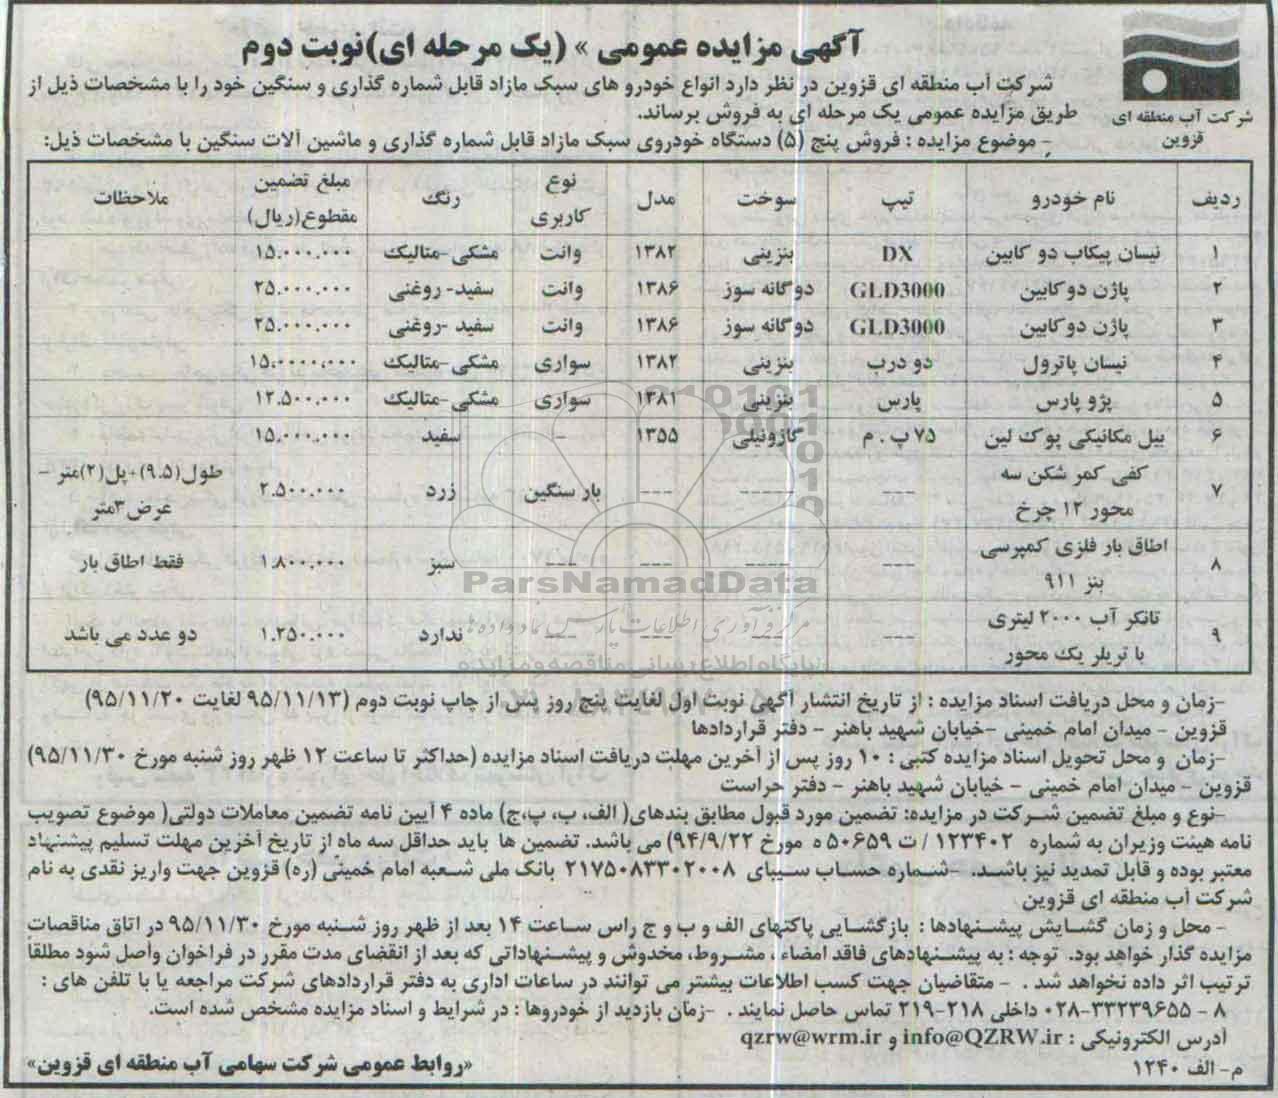 آگهی مزایده عمومی » (یک مرحله ای)نوبت دوم
شرکت آب منطقه ای قزوین
شرکت آب منطقه ای قزوین در نظر دارد انواع خودرو های سبک مازاد قابل شماره گذاری و سنگین خود را با مشخصات ذیل از
طریق مزایده عمومی یک مرحله ای به فروش برساند.
- موضوع مزایده : فروش پنج (۵) دستگاه خودروی سبک مازاد قابل شماره گذاری و ماشین آلات سنگین با مشخصات ذیل:
ردیف نام خودرو تیپ سوخت مدل نوع کاربری رنگ مبلغ تضمین مقطوع(ریال) ملاحظات
۱ نیسان پیکاب دو کابین DX بنزینی ۱۳۸۲ وانت مشکی-متالیک ۱۵.۰۰۰.۰۰۰
۲ پاژن دوکابین GLD3000 دوگانه سوز ۱۳۸۶ وانت سفید- روغنی ۲۵.۰۰۰.۰۰۰
۳ پاژن دوکابین GLD3000 دوگانه سوز ۱۳۸۶ وانت سفید -روغنی ۲۵.۰۰۰.۰۰۰
۴ نیسان پاترول دو درب بنزینی ۱۳۸۲ سواری مشکی-متالیک ۱۵.۰۰۰۰.۰۰۰
۵ پژو پارس پارس بنزینی ۱۳۸۱ سواری مشکی-متالیک ۱۲.۵۰۰.۰۰۰
۶ بیل مکانیکی پوک لین ۷۵ پ . م گازوئیلی ۱۳۵۵ - سفید ۱۵.۰۰۰.۰۰۰
۷ کفی کمر شکن سه محور ۱۲ چرخ --- ----- --- بار سنگین زرد ۲.۵۰۰.۰۰۰ طول(۹.۵)+پل(۲)متر - عرض۳متر
۸ اطاق بار فلزی کمپرسی بنز ۹۱۱ --- ----- --- --- سبز ۱.۸۰۰.۰۰۰ فقط اطاق بار
۹ تانکر آب ۲۰۰۰ لیتری با تریلر یک محور --- --- --- --- ندارد ۱.۲۵۰.۰۰۰ دو عدد می باشد
ParsNamadData
مرکز فرآوری اطلاعات پارس نماد داده ها
پایگاه اطلاع رسانی مناقصه و مزایده
-زمان و محل دریافت اسناد مزایده : از تاریخ انتشار آگهی نوبت اول لغایت پنج روز پس از چاپ نوبت دوم (۹۵/۱۱/۱۳ لغایت ۹۵/۱۱/۲۰)
قزوین - میدان امام خمینی -خیابان شهید باهنر - دفتر قراردادها
-زمان و محل تحویل اسناد مزایده کتبی : ۱۰ روز پس از آخرین مهلت دریافت اسناد مزایده (حداکثر تا ساعت ۱۲ ظهر روز شنبه مورخ ۹۵/۱۱/۳۰)
قزوین - میدان امام خمینی - خیابان شهید باهنر - دفتر حراست
-نوع و مبلغ تضمین شرکت در مزایده: تضمین مورد قبول مطابق بندهای( الف، ب، پ،ج) ماده ۴ آیین نامه تضمین معاملات دولتی( موضوع تصویب
نامه هیئت وزیران به شماره ۱۲۳۴۰۲ / ت ۵۰۶۵۹ ه مورخ ۹۴/۹/۲۲) می باشد. تضمین ها باید حداقل سه ماه از تاریخ آخرین مهلت تسلیم پیشنهاد
معتبر بوده و قابل تمدید نیز باشد. -شماره حساب سیبای ۲۱۷۵۰۸۳۳۰۲۰۰۸ بانک ملی شعبه امام خمینی (ره) قزوین جهت واریز نقدی به نام
شرکت آب منطقه ای قزوین
- محل و زمان گشایش پیشنهادها : بازگشایی پاکتهای الف و ب و ج راس ساعت ۱۴ بعد از ظهر روز شنبه مورخ ۹۵/۱۱/۳۰ در اتاق مناقصات
مزایده گذار خواهد بود. توجه : به پیشنهادهای فاقد امضاء، مشروط، مخدوش و پیشنهاداتی که بعد از انقضای مدت مقرر در فراخوان واصل شود مطلقاً
ترتیب اثر داده نخواهد شد . - متقاضیان جهت کسب اطلاعات بیشتر می توانند در ساعات اداری به دفتر قراردادهای شرکت مراجعه یا با تلفن های :
۸ - ۳۳۲۳۹۶۵۵-۰۲۸ داخلی ۲۱۸-۲۱۹ تماس حاصل نمایند . -زمان بازدید از خودروها : در شرایط و اسناد مزایده مشخص شده است.
آدرس الکترونیکی : info@QZRW.ir و qzrw@wrm.ir
م- الف ۱۲۴۰ «روابط عمومی شرکت سهامی آب منطقه ای قزوین»